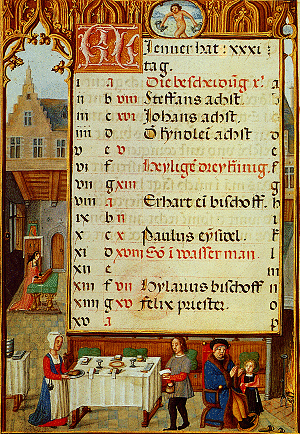 Jenner hat : xxxi :
tag.
i a Die bescheidūg x̄ a
ii b viii Steffans achst.
iii c xvi Johans achst.
iiii d Thynolei achst d
v e v
vi f Heylige drey kinig. f
vii g xiii g
viii a Erhart ei bischoff. h
ix b ii i
x c x Paulus eysidel. k
xi d xviii Sō i wasser man. l
xii e m
xiii f vii Hylarius bischoff n
xiiii g xv felix priester. o
xv a p